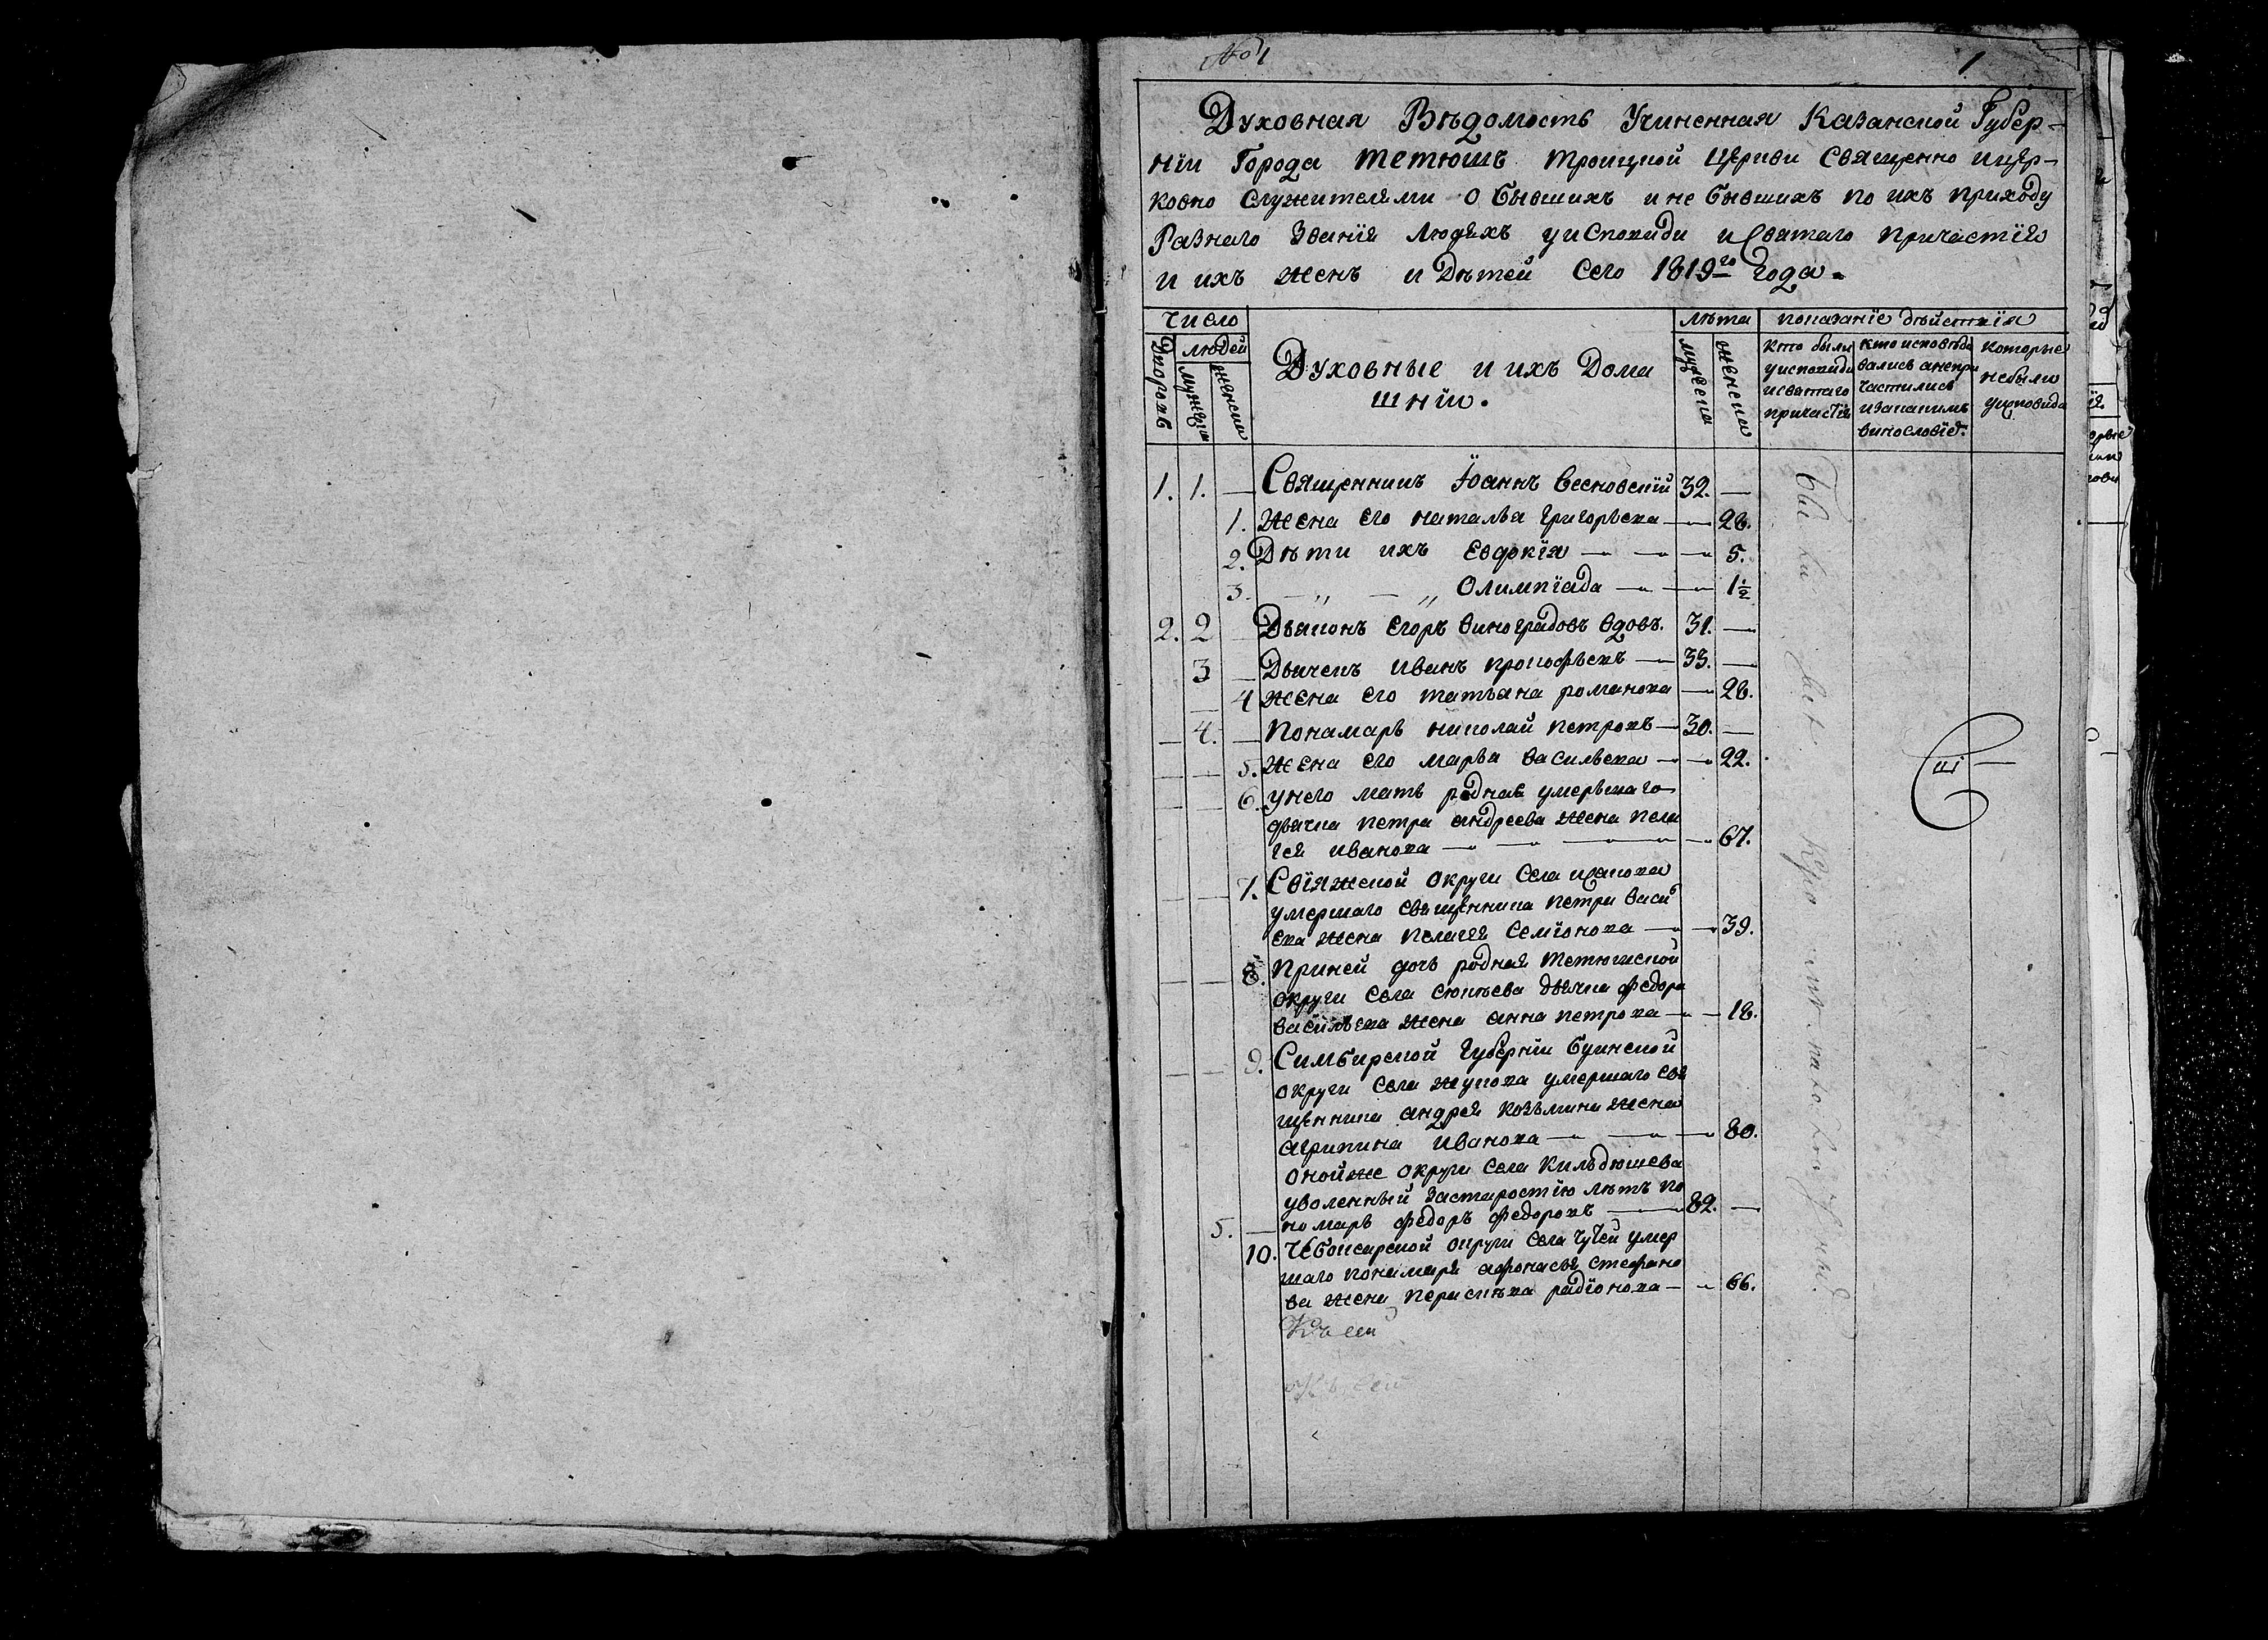 № 1
1
Духовная Вѣдомость Учиненная Казанской Губер-
нїи Города Тетюшъ Троицкой Церкви Священно ицер-
ковно служителями о бывшихъ и не бывшихъ по ихъ приходу
Разнаго Званїя людяхъ уисповиди и Святаго причастїя
и ихъ женъ и Дѣтей Сего 1819го года.
Число
лѣта
показанїе дѣйствїя
Дворовъ
людей
мужеска
женска
Духовные и ихъ Дома
шнїи.
мужеска
женска
Кто были
уисповиди
исвятаго
причастїя
Кто исповѣдо
вались анепри
частились
изакакимъ
винословїе.
которые
небыли
уисповиди
1. 1. — Священникъ Їоаннъ Весновскїй 32. —
1. Жена его наталья григорьева — 28.
2. Дѣти ихъ Евдокїя — 5.
3. — „ — „ Олимпїада — 1½
2. 2 — Дьяконъ Егоръ Виноградовъ вдовъ. 31. —
3 — Дьячекъ Иванъ прокофьевъ — 33. —
4 жена его татьяна романова — 28.
4. — Пономарь николай петровъ — 30. —
5. Жена его марья васильева — 22.
6. унего мать родная умершаго
дьячка петра андреева жена пела
гея иванова — 67.
7. Свїяжской округи села
умершаго священника петра васи
ева жена пелагея семїонова — 39.
8. Приней дочь родная тетюшской
округи села сюкѣева дьячка федора
васильева жена анна петрова — 18.
9. Симбирской губернїи буинской
округи села жукова умершаго свя
щенника андрея козьмина жена
агрипина иванова — 80.
онойже округи села Кильдюшева
уволенный застаростїю лѣтъ по
5. — номарь федоръ федоровъ — 82. —
10. Чебоксарской округи села чучей умер
шаго пономаря афонасья стефано
ва жена параскѣва радїонова — 66.
Къ сей
Къ сей